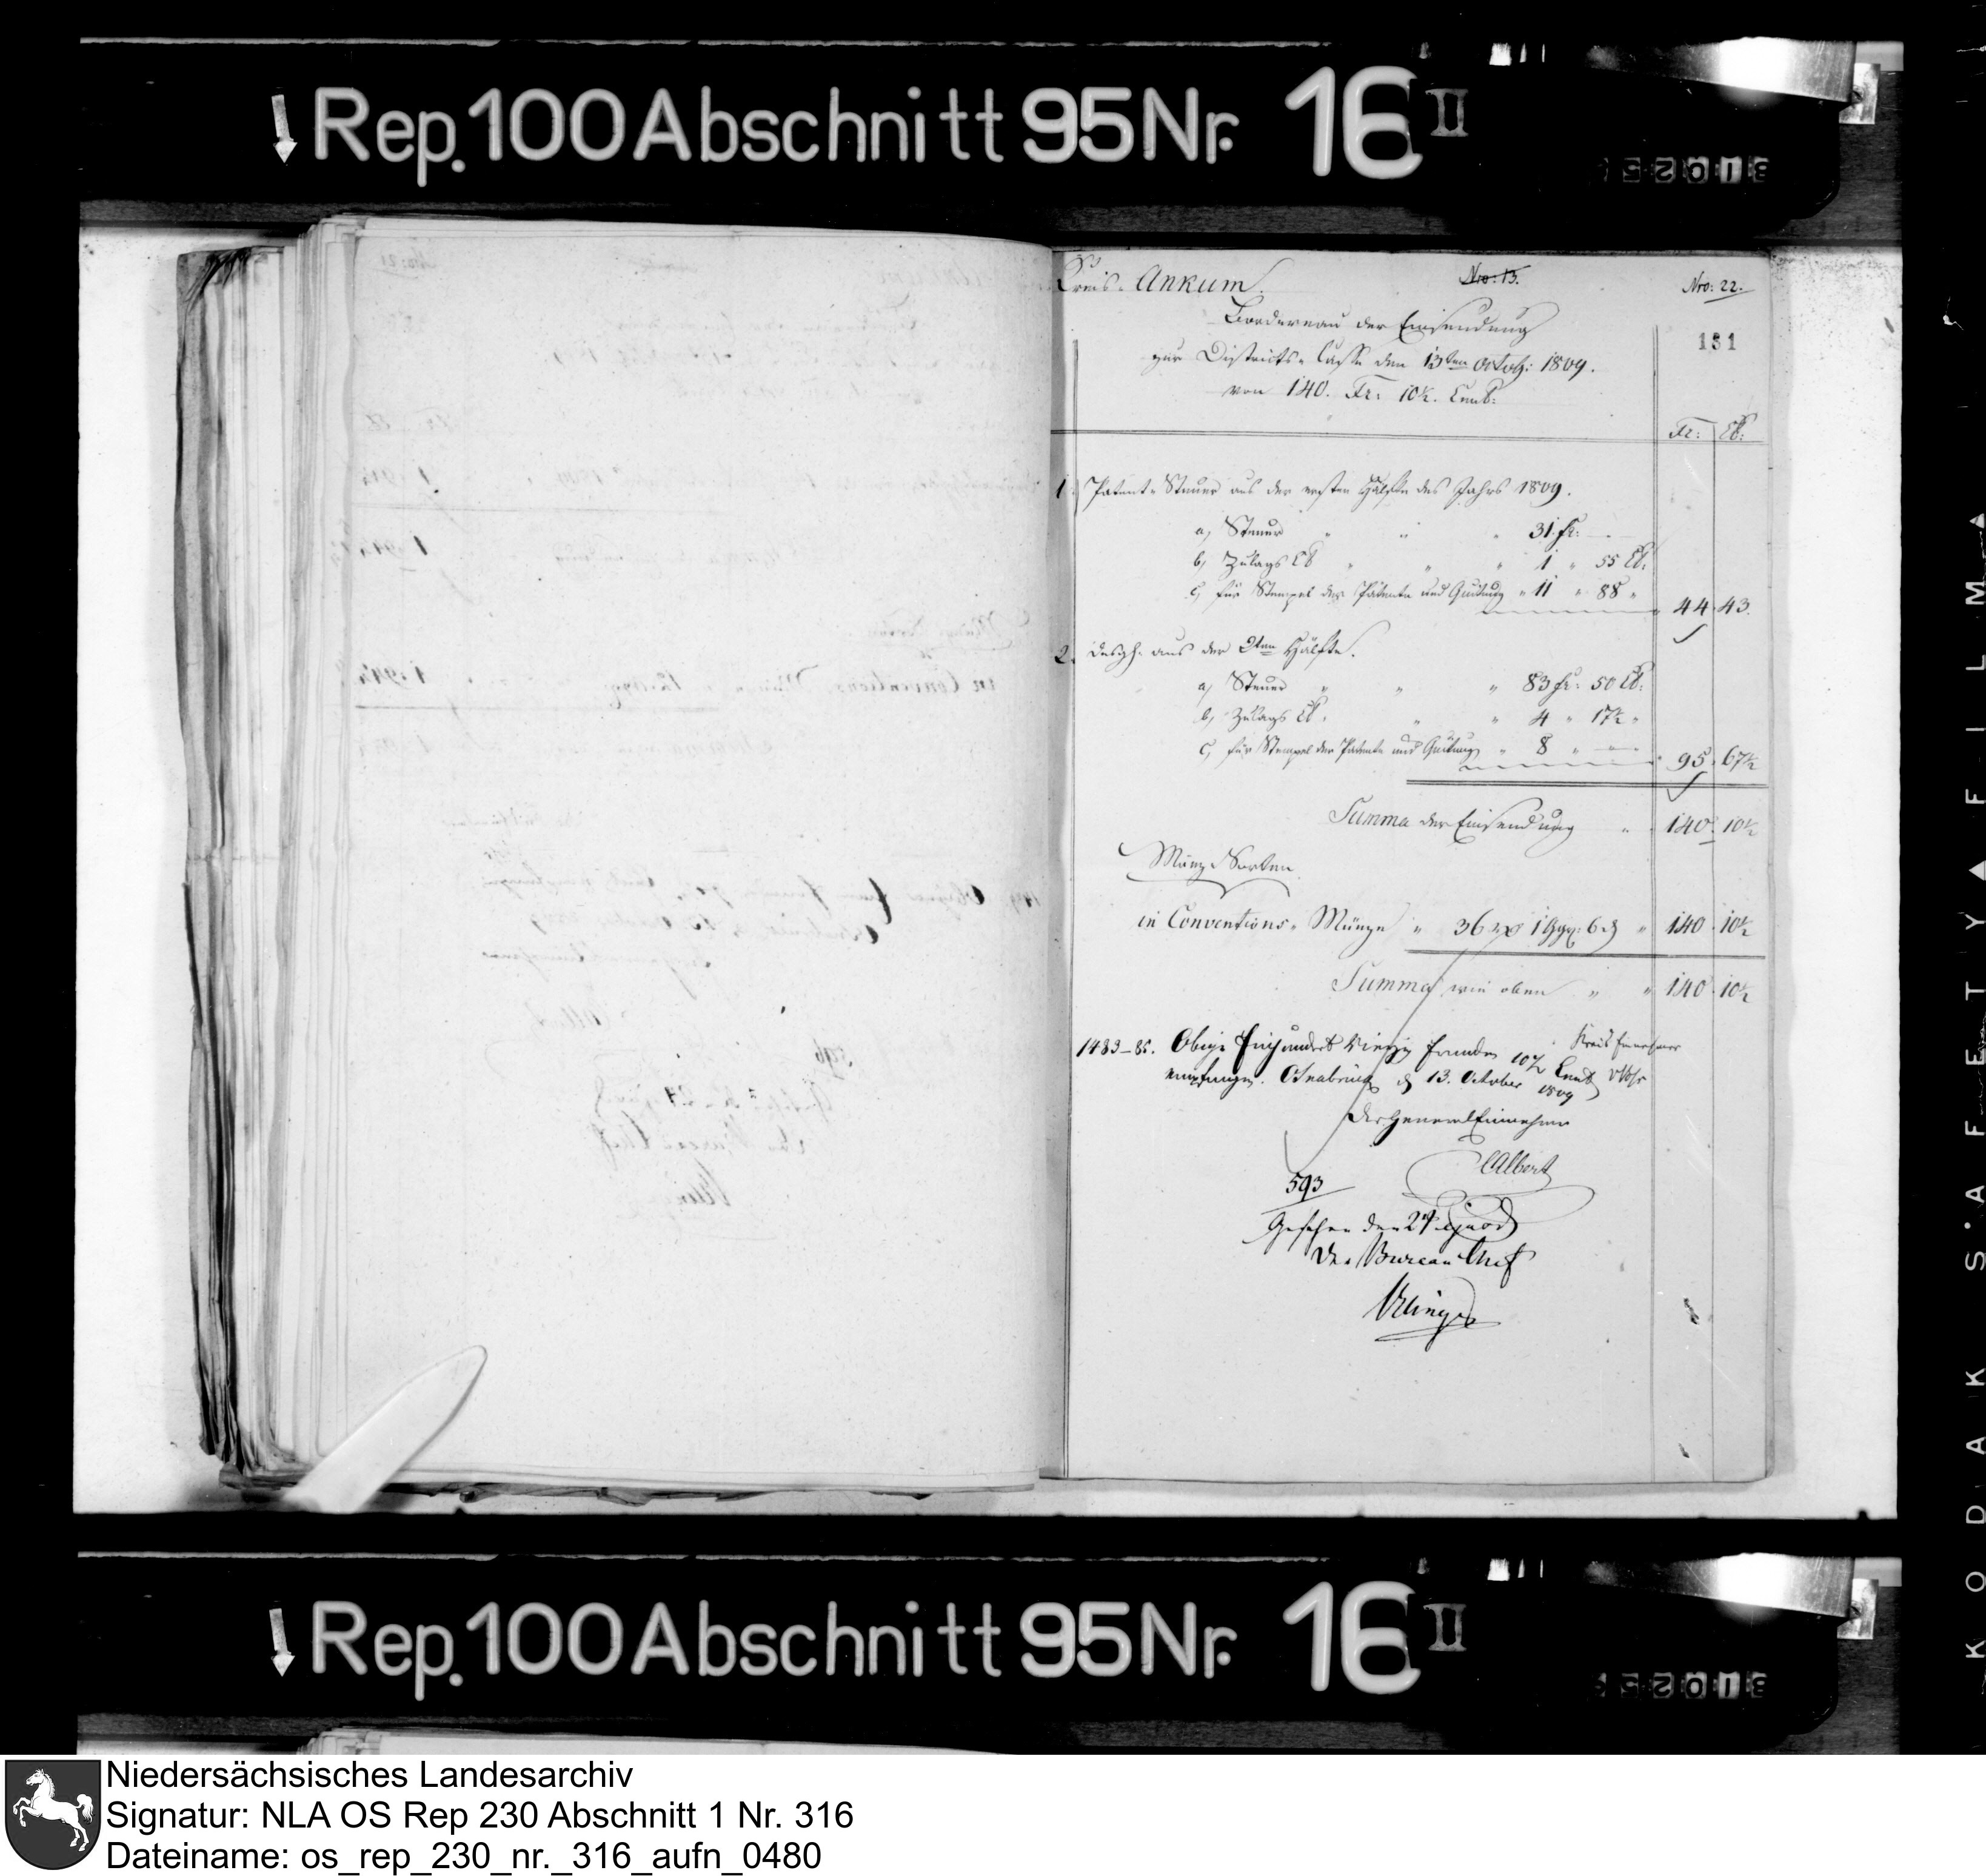 Rep. 100 Abschnitt 95 Nr. 16 II
Kreis Ankum. Nro: 13. Nro: 22.
Bordereau der Einsendung
131
zur Districts-Casse den 13ten Octob: 1809.
von 140. Fr: 10½. Cent:
Fr: Ct:
1. Patent-Steuer aus der ersten Hälfte des Jahrs 1809.
a, Steuer " " " 31 fr: —
b, Zulags Ct " " " 1 " 55 Ct:
c, für Stempel der Patente und Quitung " 11 " 88 " 44 43.
2. Desgl. aus der 2ten Hälfte.
a, Steuer " " " 83 fr: 50 Ct:
b, Zulags Ct. " " 4 " 17½ "
c, für Stempel der Patente und Quitung " 8 " — 95. 67½
Summa der Einsendung " 140. 10½
Münz-Sorten
in Conventions-Münze " 36 1 Ggr: 6 " 140. 10½
Summa wie oben " " 140. 10½
1483-85. Obige Einhundert Vierzig Franken 10½ Cent Kreis Einnehmer
empfangen. Osnabrück d 13. October 1809
Der General Einnehmer
Albert
593
Gesehen den 24
Der Bureau Chef
Rep. 100 Abschnitt 95 Nr. 16 II
KODAK SAFETY FILM
Niedersächsisches Landesarchiv
Signatur: NLA OS Rep 230 Abschnitt 1 Nr. 316
Dateiname: os_rep_230_nr._316_aufn_0480